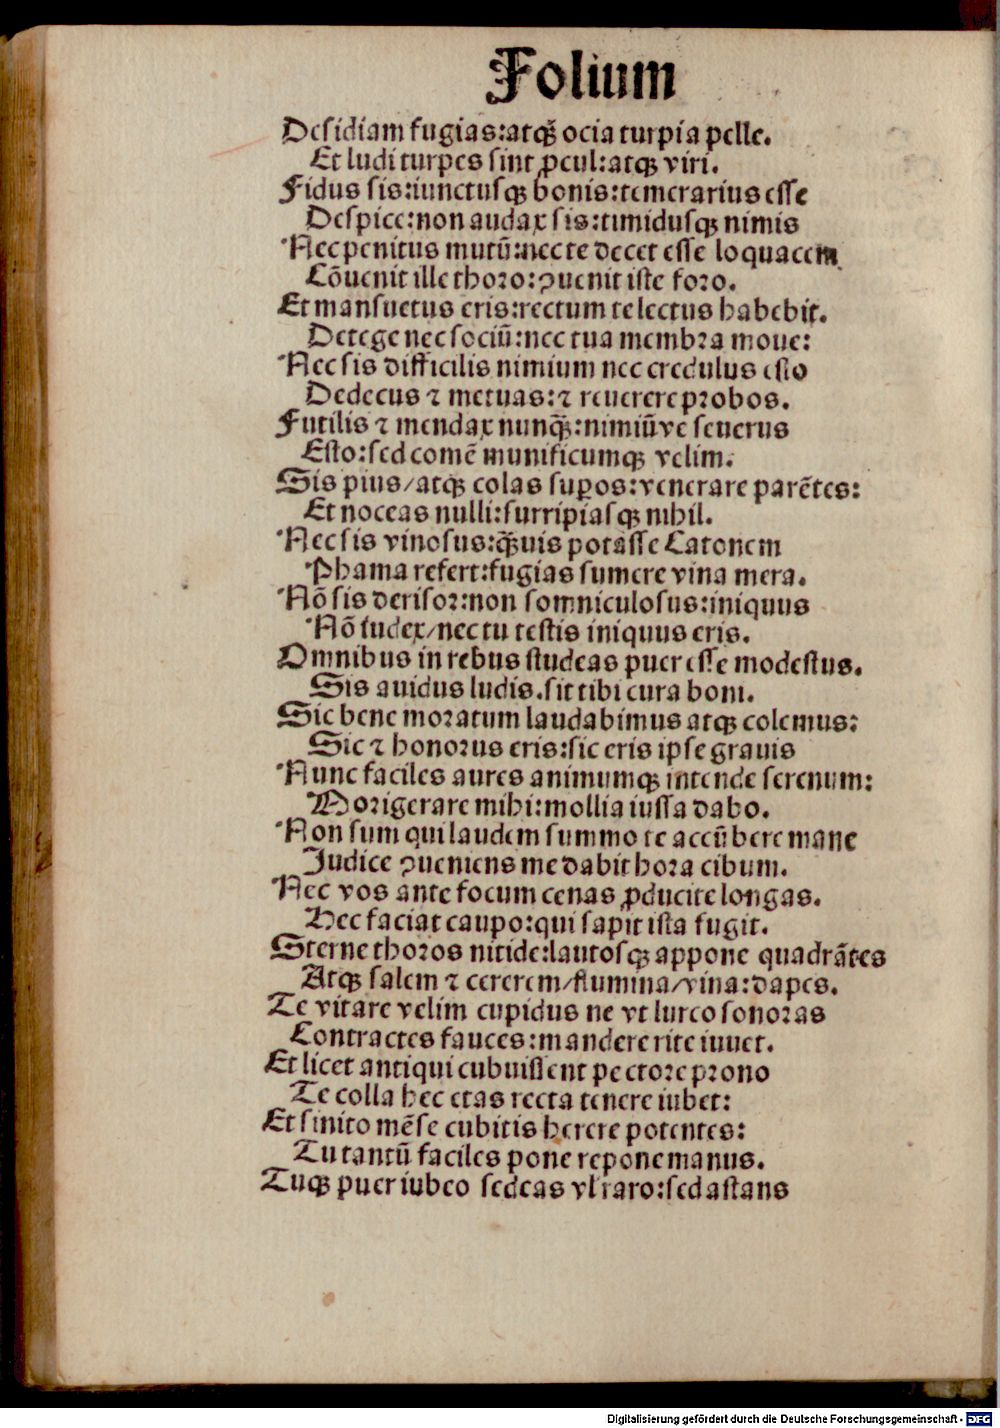 Folium
Desidiam fugias:atqꝫ ocia turpia pelle.
Et ludi turpes sint ꝓcul:atqꝫ viri.
Fidus sis:iunctusqꝫ bonis:temerarius esse
Despice:non audax sis:timidusqꝫ nimis
Nec penitus mutū:nec te decet esse loquacem
Cōuenit ille thoro:ꝯuenit iste foro.
Et mansuetus eris:rectum te lectus habebit.
Detege nec sociū:nec tua membra moue:
Nec sis difficilis nimium nec credulus esto
Dedecus ⁊ metuas:⁊ reuerere probos.
Futilis ⁊ mendax nunqᷓꝫ:nimiūve seuerus
Esto:sed comē munificumqꝫ velim.
Sis pius/atqꝫ colas suꝑos:venerare parētes:
Et noceas nulli:surripiasqꝫ nihil.
Nec sis vinosus:qᷓꝫuis potasse Catonem
Phama refert:fugias sumere vina mera.
Nō sis derisor:non somniculosus:iniquus
Nō iudex/nec tu testis iniquus eris.
Omnibus in rebus studeas puer esse modestus.
Sis auidus ludis.sit tibi cura boni.
Sic bene moratum laudabimus atqꝫ colemus:
Sic ⁊ honorus eris:sic eris ipse grauis
Nunc faciles aures animumqꝫ intende serenum:
Morigerare mihi:mollia iussa dabo.
Non sum qui laudem summo te accūbere mane
Judice ꝯueniens me dabit hora cibum.
Nec vos ante focum cenas ꝓducite longas.
Hec faciat caupo:qui sapit ista fugit.
Sterne thoros nitide:lautosqꝫ appone quadrātes
Atqꝫ salem ⁊ cererem/flumina/vina:dapes.
Te vitare velim cupidus ne vt lurco sonoras
Contractes fauces:mandere rite iuuet.
Et licet antiqui cubuissent pectore prono
Te colla hec etas recta tenere iubet:
Et sinito mēse cubitis herere potentes:
Tu tantū faciles pone repone manus.
Tuqꝫ puer iubeo sedeas vl raro:sed astans
Digitalisierung gefördert durch die Deutsche Forschungsgemeinschaft - DFG